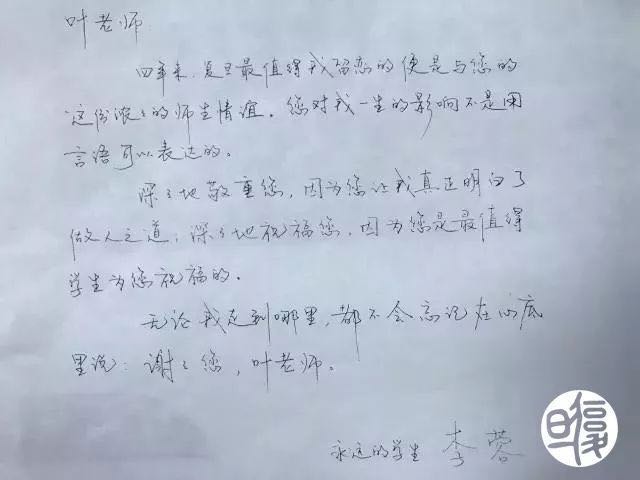 叶老师:
四年来,复旦最值得我留恋的便是与您的
这份浓々的师生情谊。您对我一生的影响不是用
言语可以表达的。
深々地敬重您,因为您让我真正明白了
做人之道;深々地祝福您,因为您是最值得
学生为您祝福的。
无论我走到哪里,都不会忘记在心底
里说:谢々您,叶老师。
永远的学生 李蓉